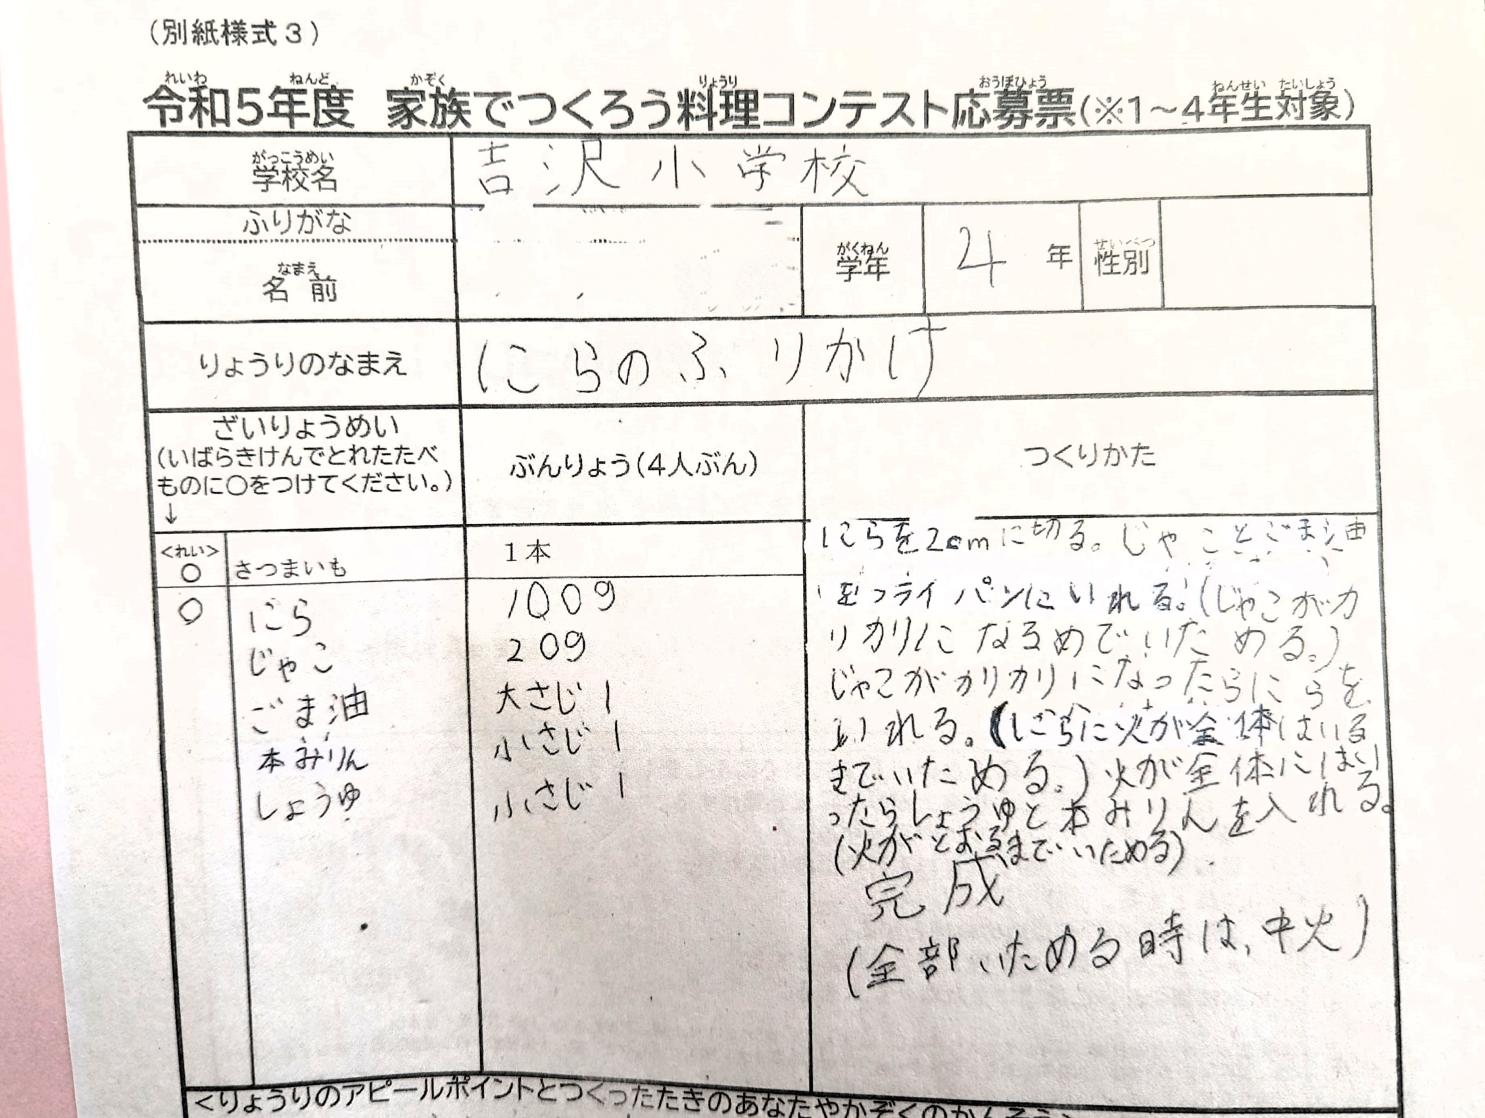 (別紙様式3)
令和5年度 家族でつくろう料理コンテスト応募票(※1～4年生対象)
れいわ ねんど かぞく りょうり おうぼひょう ねんせい たいしょう
がっこうめい
学校名 吉沢小学校
ふりがな
なまえ
名前
がくねん
学年 4年
せいべつ
性別
りょうりのなまえ にらのふりかけ
ざいりょうめい
(いばらきけんでとれたたべ
ものに○をつけてください。)
↓
ぶんりょう(4人ぶん)
つくりかた
<れい>
○ さつまいも 1本
○ にら 100g
じゃこ 20g
ごま油 大さじ1
本みりん 小さじ1
しょうゆ 小さじ1
にらを2cmに切る。じゃことごま油
をフライパンにいれる。(じゃこがカ
リカリになるめでいためる。)
じゃこがカリカリになったらにらを
いれる。(にらに火が全体はいる
までいためる。)火が全体にはい
ったらしょうゆと本みりんを入れる。
(火がとおるまでいためる)
完成
(全部いためる時は、中火)
<りょうりのアピールポイントとつくったときのあなたやかぞくのかんそう>